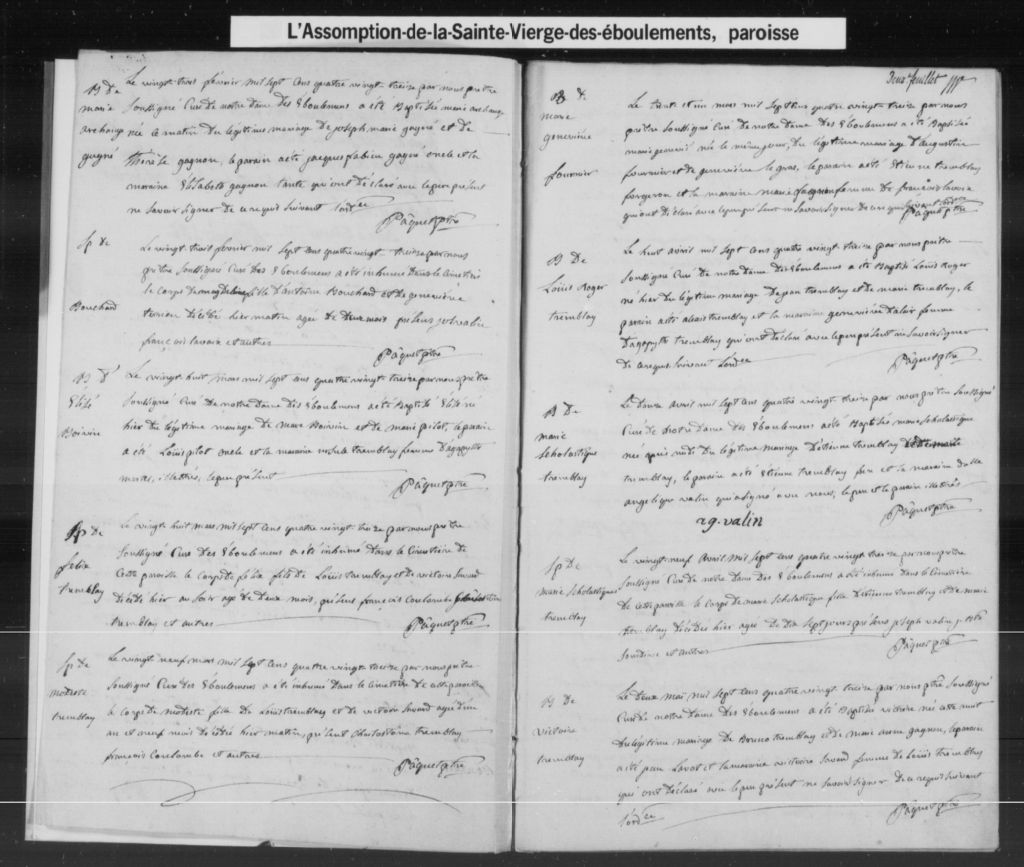 L'Assomption-de-la-Sainte-Vierge-des-éboulements, paroisse
B De
marie
archange
gagné
Le vingt trois février mil sept cens quatre vingt treize par nous prêtre
soussigné Curé de notre Dame Des Eboulemens a été Baptisée marie archange
née le matin du légitime mariage de joseph marie gagné et de
gagnon, le parain a été jacques fabien gagné oncle et la
maraine Elisabeth gagnon tante qui ont déclaré avec le pere présent
ne savoir signer de ce requis suivant
Pâquet ptre
Sp de
Bouchard
Le vingt trois fevrier mil sept cens quatre vingt treize par nous
prêtre soussigné Curé des Eboulemens a été inhumé dans le cimetière
le corps de fille d'antoine Bouchard et de geneviève
décédé hier matin agée de deux mois présens
françois lavoie et autres
Pâquet ptre
B D
Elisé
Boivin
Le vingt huit mars mil sept cens quatre vingt treize par nous prêtre
soussigné Curé de notre Dame Des Eboulemens a été Baptisé Elisé né
hier du légitime mariage de marc Boivin et de marie pilot, le parain
a été Louis pilot oncle et la maraine ursule tremblay femme
illettrés, le pere présent
Pâquet ptre
Sp de
felix
tremblay
Le vingt huit mars mil sept cens quatre vingt treize par nous prêtre
soussigné Curé des Eboulemens a été inhumé dans le Cimetiere de
Cette paroisse le corps de felix fils de Louis tremblay et de victoire savard
décédé hier au soir agé de deux mois, présens françois Coulombe
tremblay et autres
Pâquet ptre
Sp de
modeste
tremblay
Le vingt neuf mars mil sept cens quatre vingt treize par nous prêtre
soussigné Curé des Eboulemens a été inhumé dans le cimetiere de cette paroisse
le corps de modeste fille de Louis tremblay et de victoire savard agée d'un
an et neuf mois décédé hier matin, présent tremblay
françois Coulombe et autres
Pâquet ptre
Deux feuillet
B d.
marie
geneviève
fournier
Le trente et un mars mil sept cens quatre vingt treize par nous
prêtre soussigné Curé de notre Dame Des Eboulemens a été Baptisée
marie née le même jour, du légitime mariage d'augustin
fournier et de geneviève le gros, le parain a été Etienne tremblay
forgeron et la maraine marie gagnon femme de françois lavoie
qui ont déclaré avec le pere présent ne savoir signer de ce requis suivant
Pâquet ptre
B De
Loüis Roger
tremblay
Le huit avril mil sept cens quatre vingt treize par nous prêtre
soussigné Curé de notre Dame des Eboulemens a été Baptisé Louis Roger
né hier du légitime mariage de jean tremblay et de marie tremblay, le
parain a été alexis tremblay et la maraine geneviève femme
tremblay qui ont déclaré avec le pere présent ne savoir signer
de ce requis suivant
Pâquet ptre
B De
marie
scholastique
tremblay
Le douze avril mil sept cens quatre vingt treize par nous prêtre soussigné
Curé de notre Dame des Eboulemens a été Baptisée marie scholastique
née du légitime mariage d'étienne tremblay
tremblay, le parain a été étienne tremblay et la maraine
angelique valin qui a signé avec nous, le pere et le parain illettrés
Pâquet ptre
valin
Sp De
marie scholastique
tremblay
Le vingt neuf Avril mil sept cens quatre vingt treize par nous prêtre
soussigné Curé de notre Dame des Eboulemens a été inhumé dans le Cimetière
de cette paroisse le corps de marie scholastique fille d'étienne tremblay et de marie
tremblay décédée hier agée de dix sept jours présens joseph valin,
et autres
Pâquet ptre
B De
victoire
tremblay
Le deux mai mil sept cens quatre vingt treize par nous ptre soussigné
Curé de notre Dame des Eboulemens a été Baptisée victoire née cette nuit
du légitime mariage de Bruno tremblay et de marie gagnon, le parain
a été jean lavoie et la maraine victoire savard femme de Louis tremblay
qui ont déclaré avec le pere présent ne savoir signer de ce requis suivant
Pâquet ptre